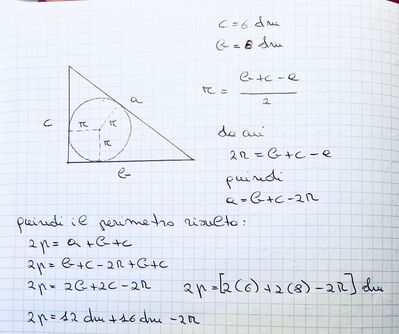 c = 6 dm
b = 8 dm
r = (b + c - a) / 2
a
c
r r
r
b
da cui
2r = b + c - a
quindi
a = b + c - 2r
quindi il perimetro risulta:
2p = a + b + c
2p = b + c - 2r + b + c
2p = 2b + 2c - 2r 2p = [2(6) + 2(8) - 2r] dm
2p = 12 dm + 16 dm - 2r